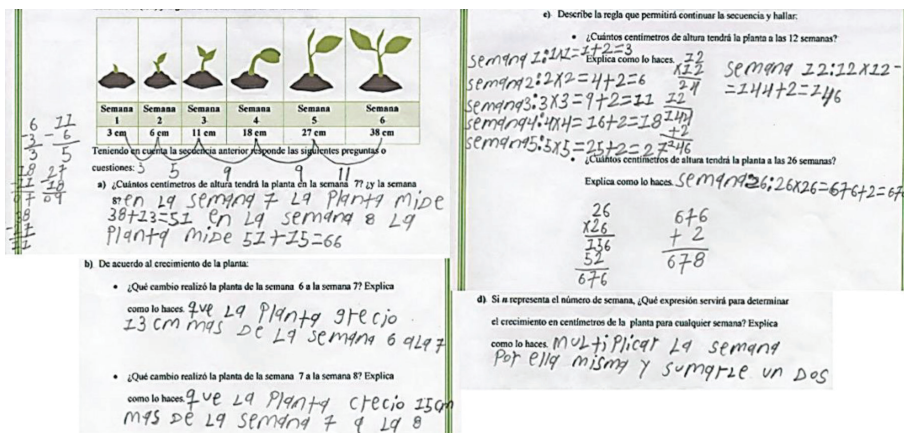 Semana 1 Semana 2 Semana 3 Semana 4 Semana 5 Semana 6
3 cm 6 cm 11 cm 18 cm 27 cm 38 cm
Teniendo en cuenta la secuencia anterior responde las siguientes preguntas o
cuestiones: 3 5 9 9 11
6 11
-3 -6
3 5
18 27
-11 18
07 09
38
11
a) ¿Cuántos centímetros de altura tendrá la planta en la semana 7? ¿y la semana
8? en La semana 7 La Planta miDe
38+13=51 en La semana 8 La
Planta miDe 51+15=66
b) De acuerdo al crecimiento de la planta:
• ¿Qué cambio realizó la planta de la semana 6 a la semana 7? Explica
como lo haces. que La Planta grecio
13 cm mas De La semana 6 a La 7
• ¿Qué cambio realizó la planta de la semana 7 a la semana 8? Explica
como lo haces. que La Planta crecio 15 cm
mas De La semana 7 a La 8
c) Describe la regla que permitirá continuar la secuencia y hallar:
• ¿Cuántos centímetros de altura tendrá la planta a las 12 semanas?
Explica como lo haces.
semana 1:1x1=1+2=3
semana2:2x2=4+2=6
semana3:3x3=9+2=11
semana4:4x4=16+2=18
semana5:5x5=25+2=27
12
x12
24
12
144
+2
146
semana 12:12x12-
=144+2=146
• ¿Cuántos centímetros de altura tendrá la planta a las 26 semanas?
Explica como lo haces. semana26:26x26=676+2=67
26
x26
156
52
676
676
+ 2
678
d) Si n representa el número de semana, ¿Qué expresión servirá para determinar
el crecimiento en centímetros de la planta para cualquier semana? Explica
como lo haces. muLtiPlicar La semana
Por ella misma y sumarLe un Dos